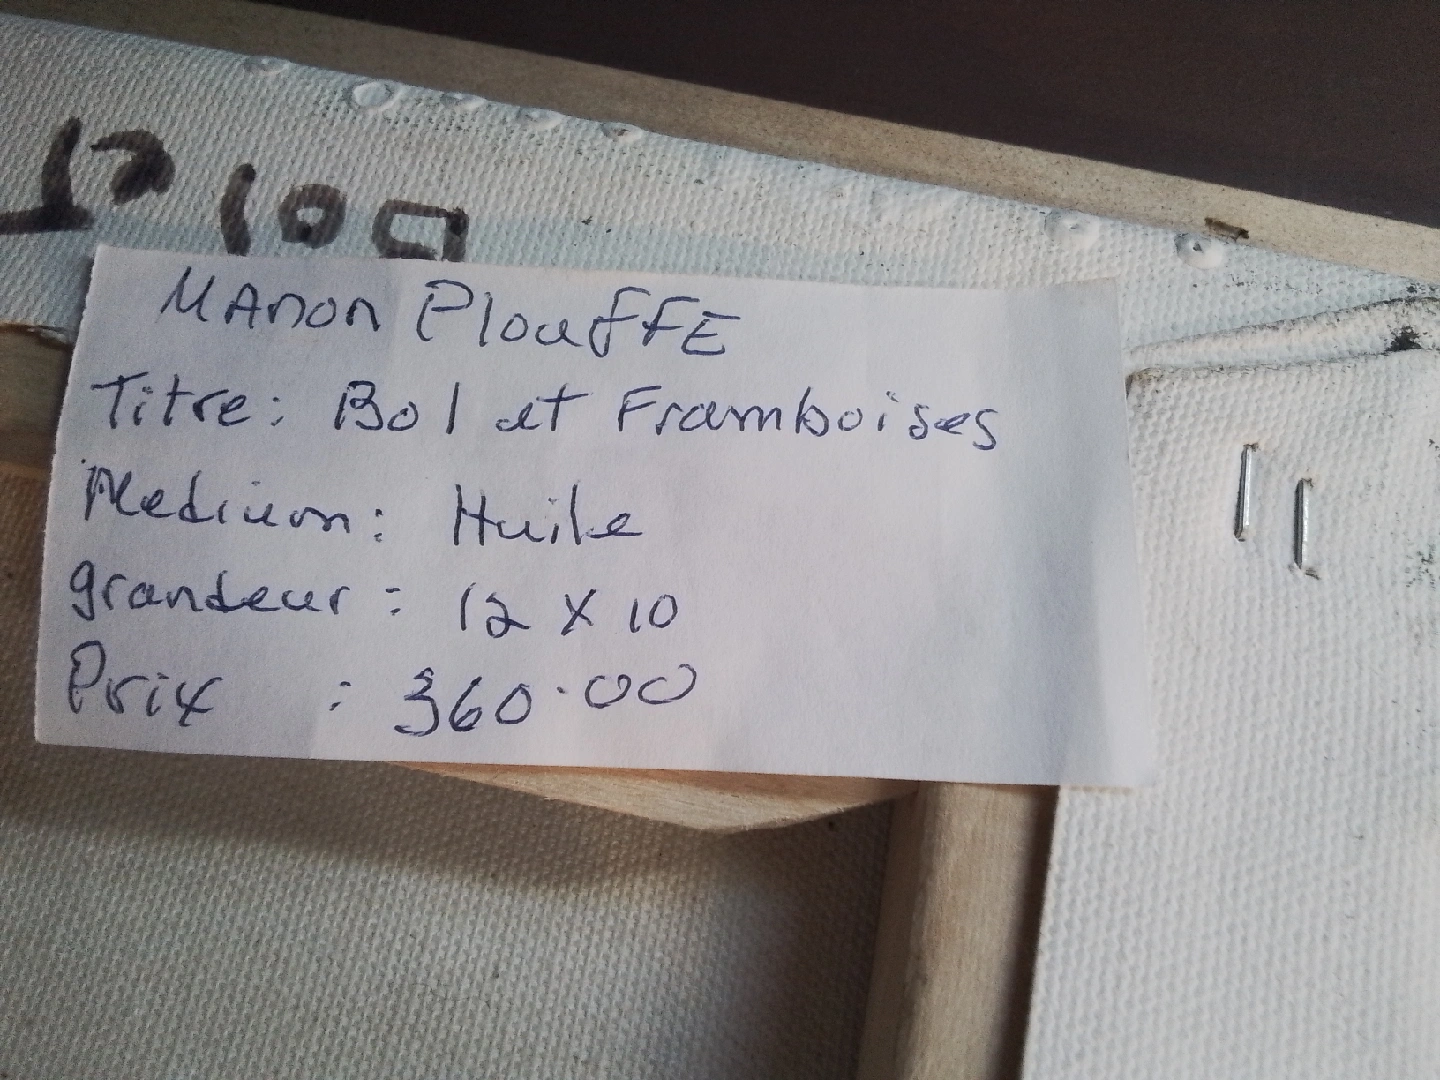 MANON PlouffE
Titre: Bol et Framboises
Medium: Huile
grandeur: 12 X 10
Prix : 360.00